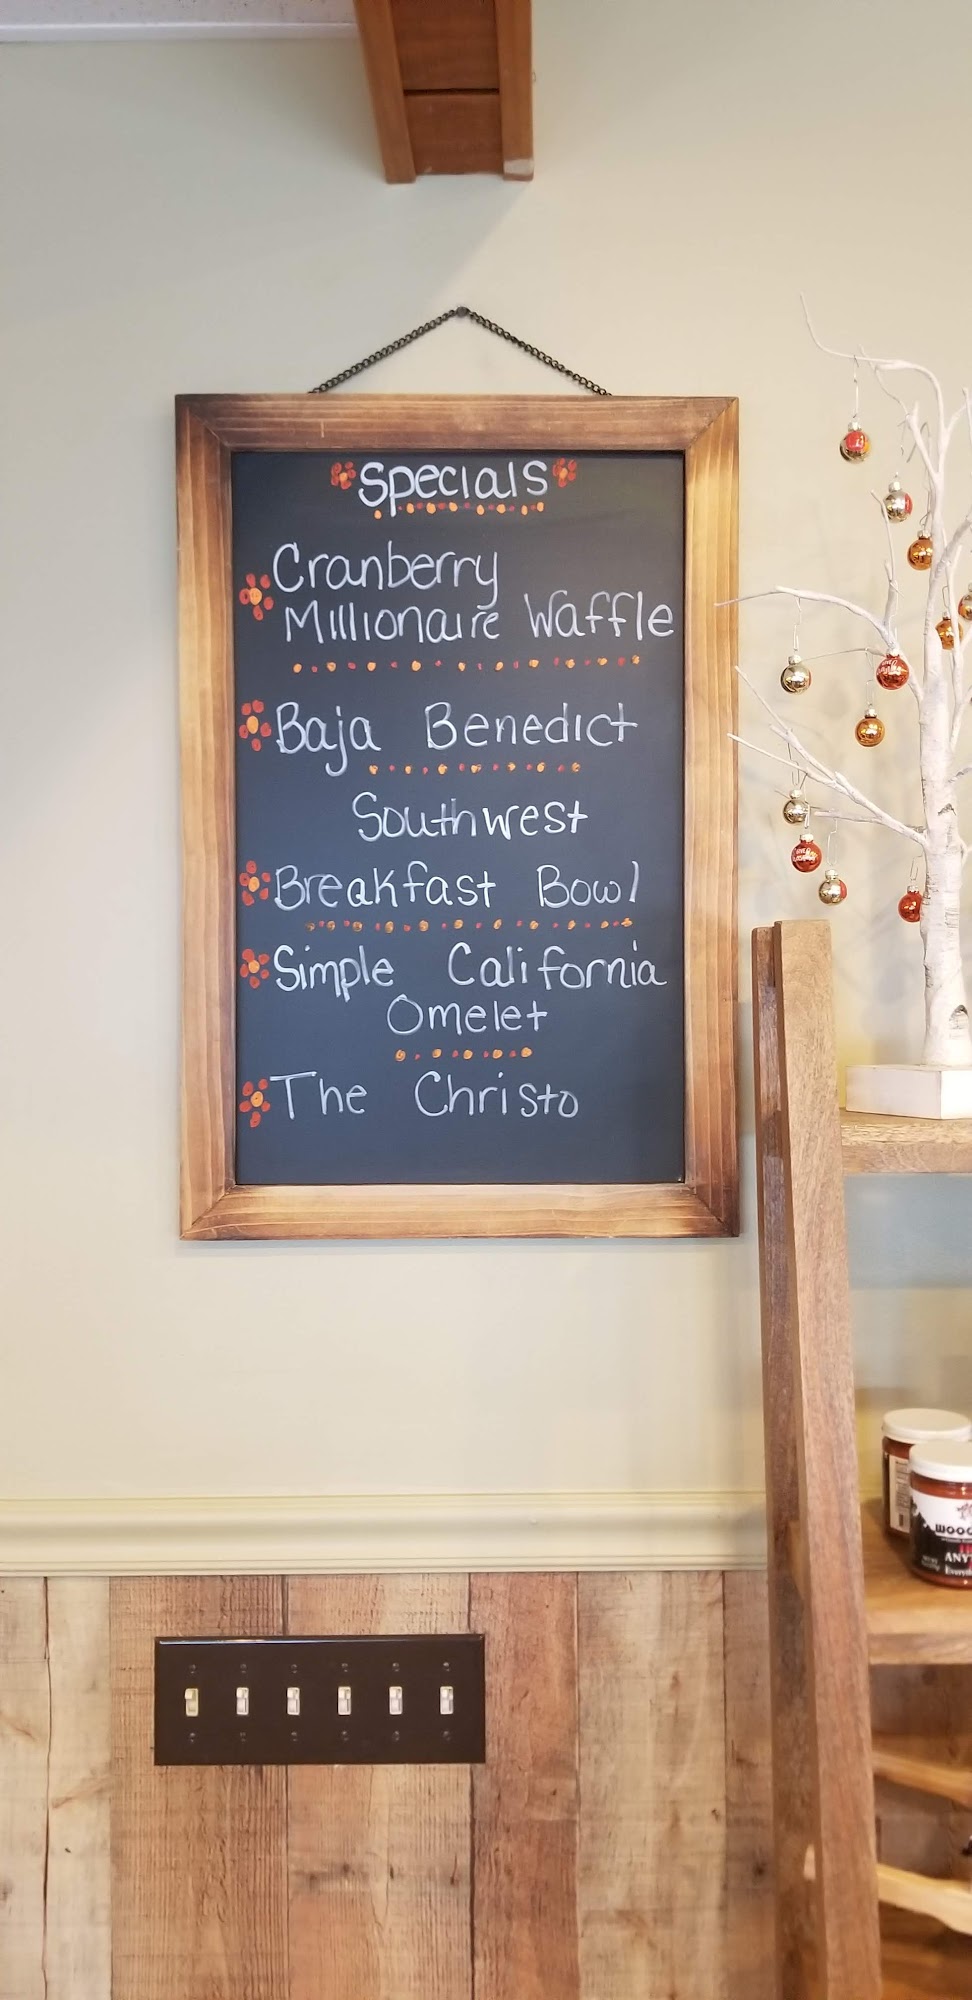 Specials
Cranberry
Millionaire Waffle
Baja Benedict
Southwest
Breakfast Bowl
Simple California
Omelet
The Christo
WOOD
ANY